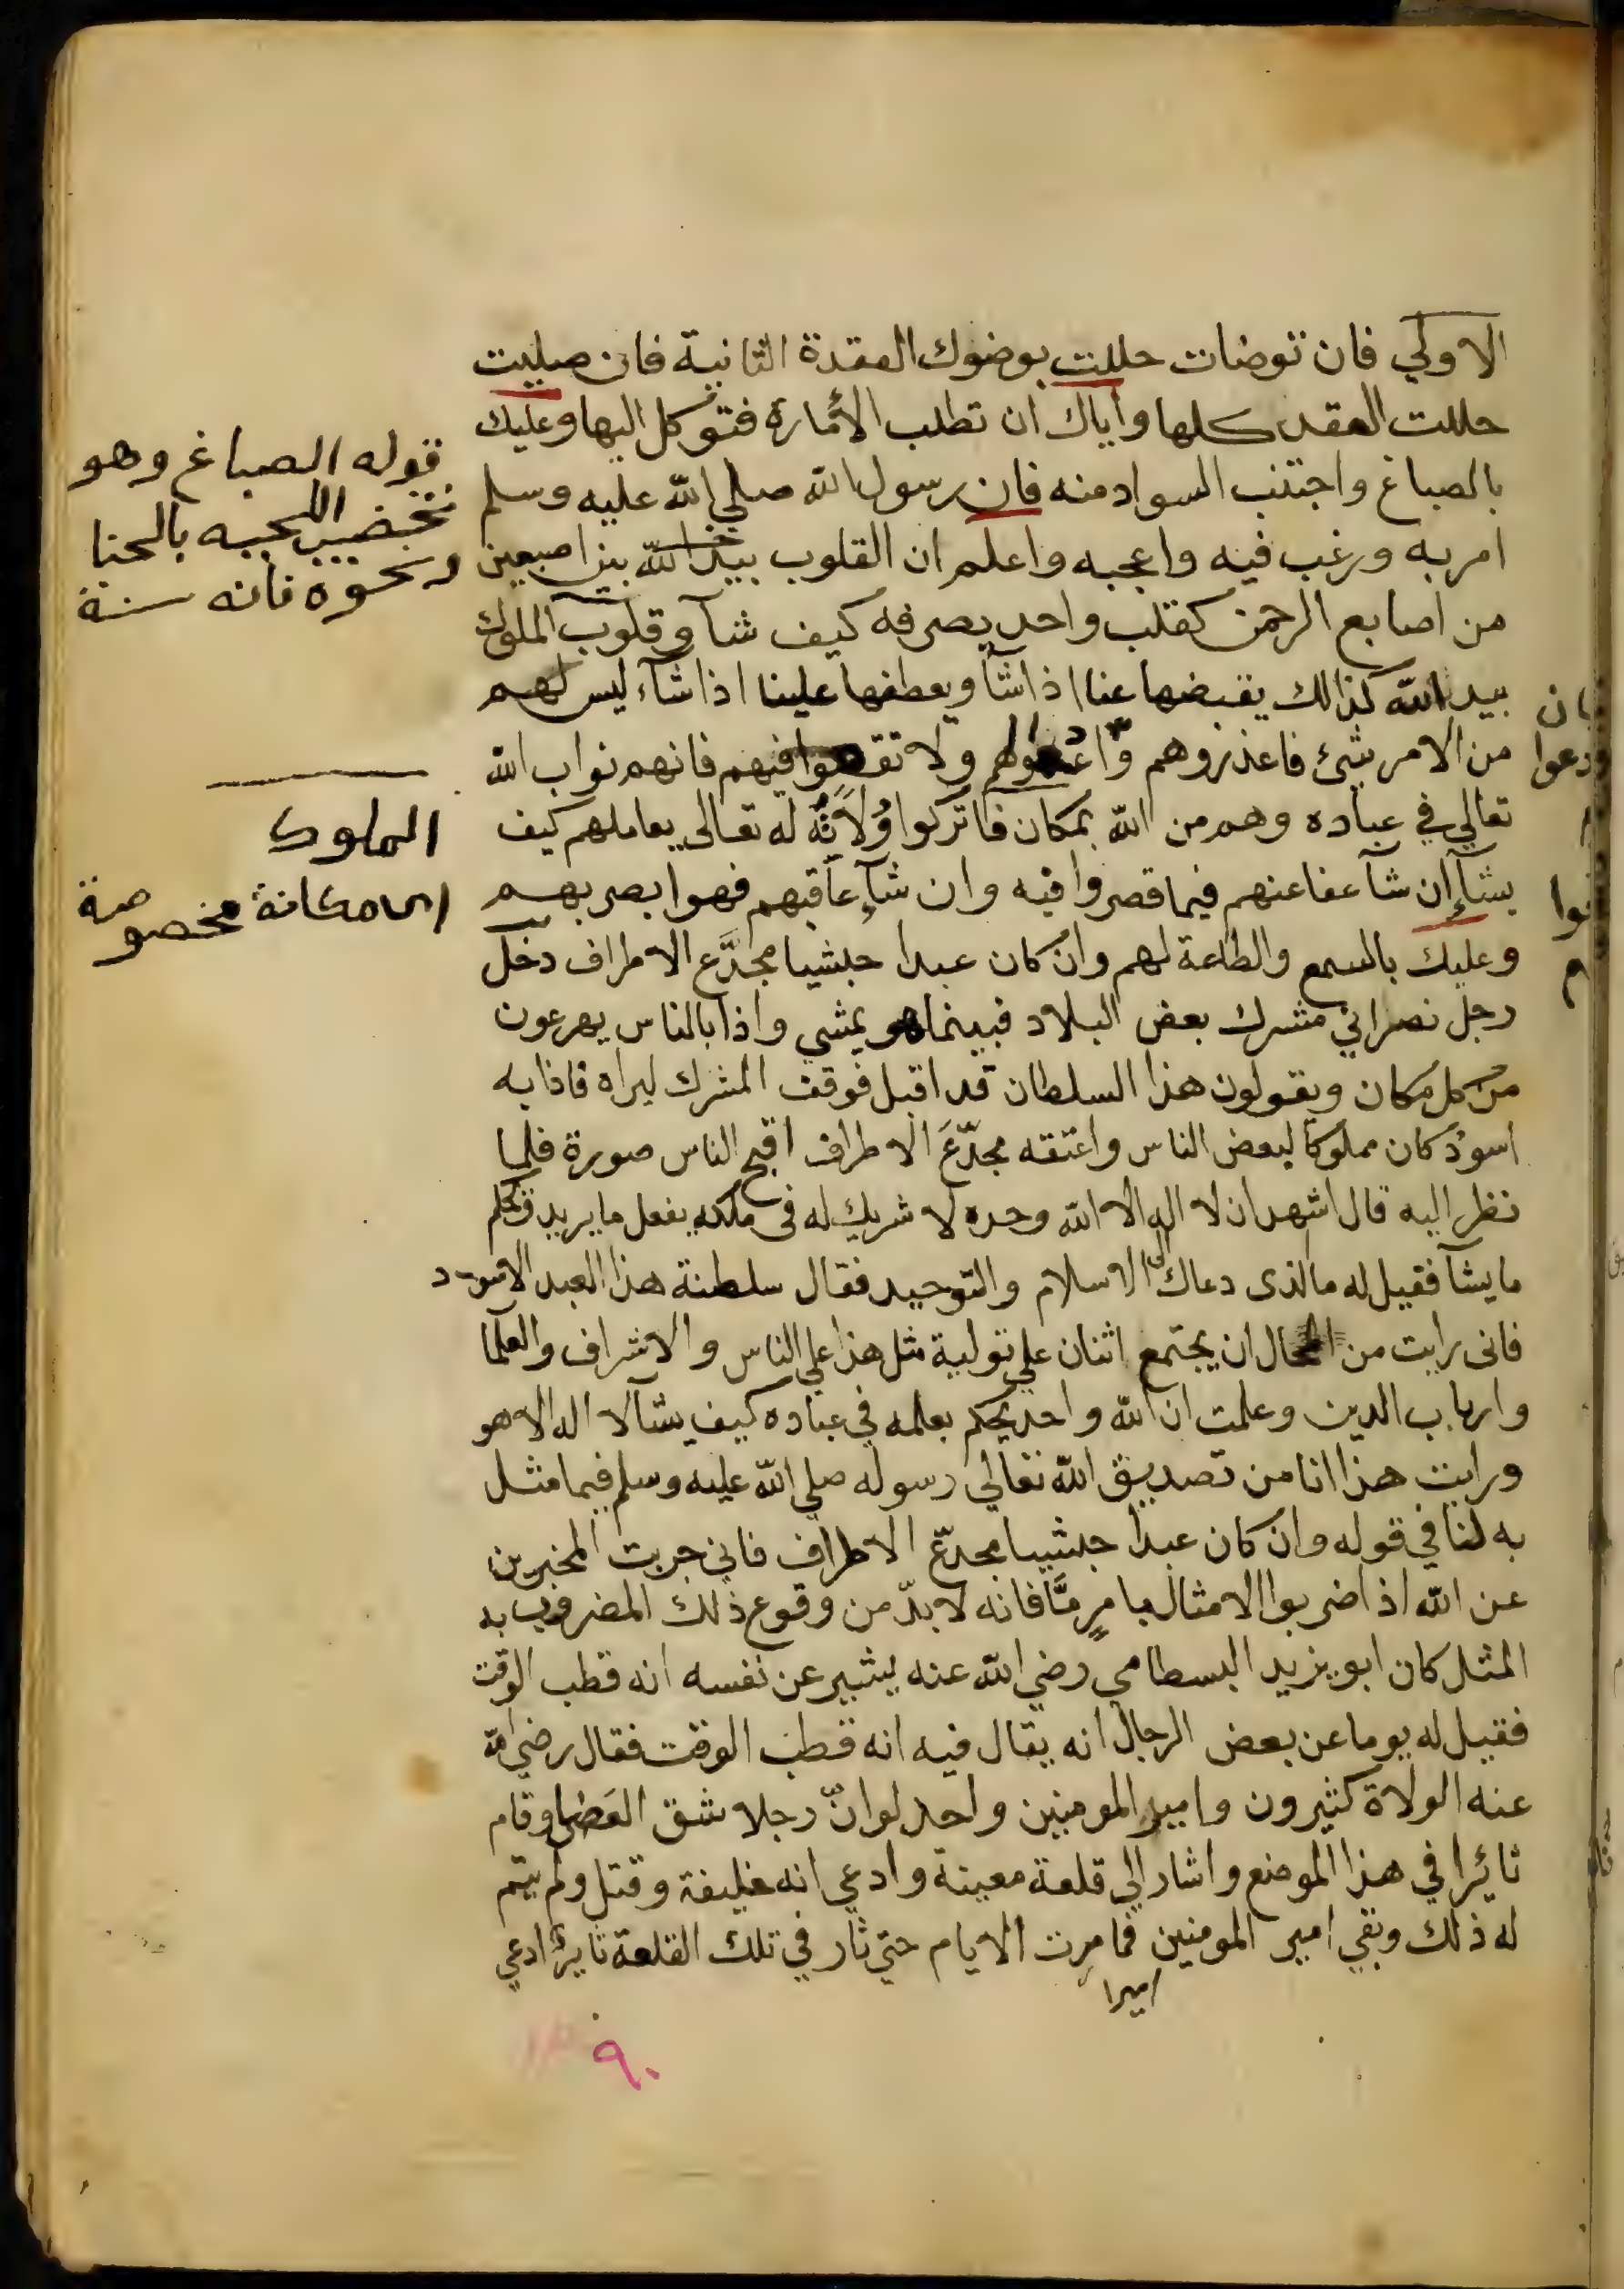 الاولي فان توضات حللت بوضوك العقدة الثانية فان صليت
حللت العقد كلها واياك ان تطلب الأمارة فتوكل اليها وعليك
بالصباغ واجتنب السواد منه فان رسول الله صلي الله عليه وسلم
امر به ورغب فيه واعجبه واعلم ان القلوب بيد الله بين اصبعين
من اصابع الرحمن كقلب واحد يصرفه كيف شآ وقلوب الملوك
بيد الله كذالك يقبضها عنا اذا شآ ويعطفها علينا اذا شآء ليس لهم
من الامر شئ فاعذروهم وادعوا لهم ولا تقعوا فيهم فانهم نواب الله
تعالي في عباده وهم من الله بمكان فاتركوا وُلاَتَهُ له تعالى يعاملهم كيف
يشآإن شآ عفا عنهم فيما قصروا فيه وان شآء عاقبهم فهو ابصر بهم
وعليك بالسمع والطاعة لهم وان كان عبدا حبشيا مجدَّع الاطراف دخل
رجل نصراني مشرك بعض البلاد فبينما هو يمشي واذا بالناس يهرعون
من كل مكان ويقولون هذا السلطان قد اقبل فوقف المشرك ليراه فاذا به
اسود كان مملوكا لبعض الناس واعتقه مجدّعَ الاطراف اقبح الناس صورة فلما
نظر اليه قال اشهد ان لا اله الا الله وحده لا شريك له فى ملكه يفعل ما يريد ويحكم
ما يشآ فقيل له ما الذى دعاك الى الاسلام والتوحيد فقال سلطنة هذا العبد الاسود
فانى رايت من المحال ان يجتمع اثنان علي تولية مثل هذا علي الناس والاشراف والعلمآ
وارباب الدين وعلمت ان الله واحد يحكم بعلمه في عباده كيف يشآ لا اله الا هو
ورايت هذا انا من تصديق الله تعالي رسوله صلي الله عليه وسلم فيما مثل
به لنا في قوله وان كان عبدا حبشيا مجدّع الاطراف فاني جربت المخبرين
عن الله اذا ضربوا الامثال بامرٍ مَّا فانه لا بدّ من وقوع ذلك المضروب به
المثل كان ابو يزيد البسطامي رضي الله عنه يشير عن نفسه انه قطب الوقت
فقيل له يوما عن بعض الرجال انه يقال فيه انه قطب الوقت فقال رضي الله
عنه الولاة كثيرون وامير المومنين واحد لو انّ رجلا شق العَصَا وقام
ثائرا في هذا الموضع واشار الي قلعة معينة وادعي انه خليفة وقتل ولم يتم
له ذلك وبقي امير المومنين فما مرت الايام حتي ثار في تلك القلعة ثاير ادعي
اميرا
٩٠
قوله الصباغ وهو
تخضيب اللحيه بالحنا
ونحوه فانه سنة
الملوك
اى مكانة مخصوصة